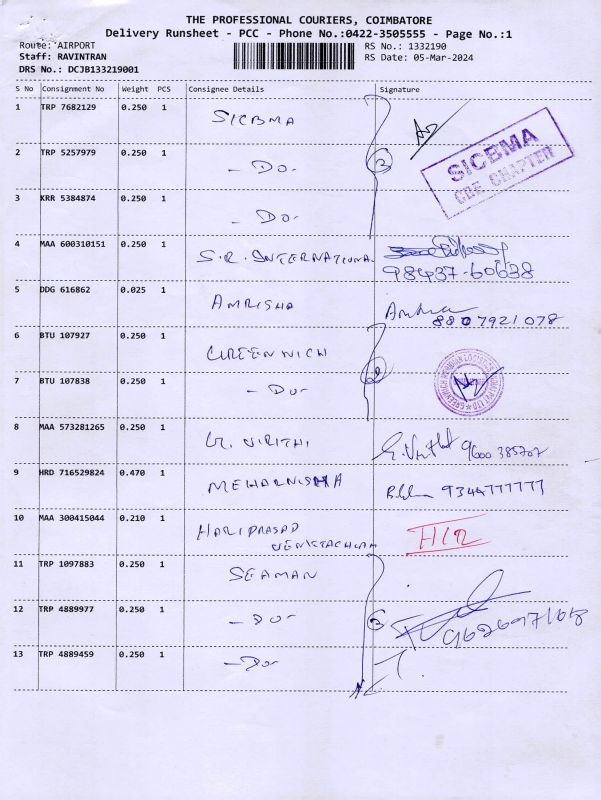 THE PROFESSIONAL COURIERS, COIMBATORE
Delivery Runsheet - PCC - Phone No.:0422-3505555 - Page No.:1
Route: AIRPORT RS No.: 1332190
Staff: RAVINTRAN RS Date: 05-Mar-2024
DRS No.: DCJB133219001
S No Consignment No Weight PCS Consignee Details Signature
1 TRP 7682129 0.250 1 SICBMA
SICBMA
CBE CHAPTER
2 TRP 5257979 0.250 1 - Do - 3
3 KRR 5384874 0.250 1 - Do -
4 MAA 600310151 0.250 1 S.R. INTERNATIONAL
98437-60638
5 DDG 616862 0.025 1 AMRISHA
8807921078
6 BTU 107927 0.250 1 GREENWICH
7 BTU 107838 0.250 1 - Do - 2
8 MAA 573281265 0.250 1 9600 385707
9 HRD 716529824 0.470 1 MEHARNISHA 9344777777
10 MAA 300415044 0.210 1 HARIPRASAD
VENKTACHLAM
11 TRP 1097883 0.250 1 SEAMAN
12 TRP 4889977 0.250 1 - Do - 3
13 TRP 4889459 0.250 1 - Do -